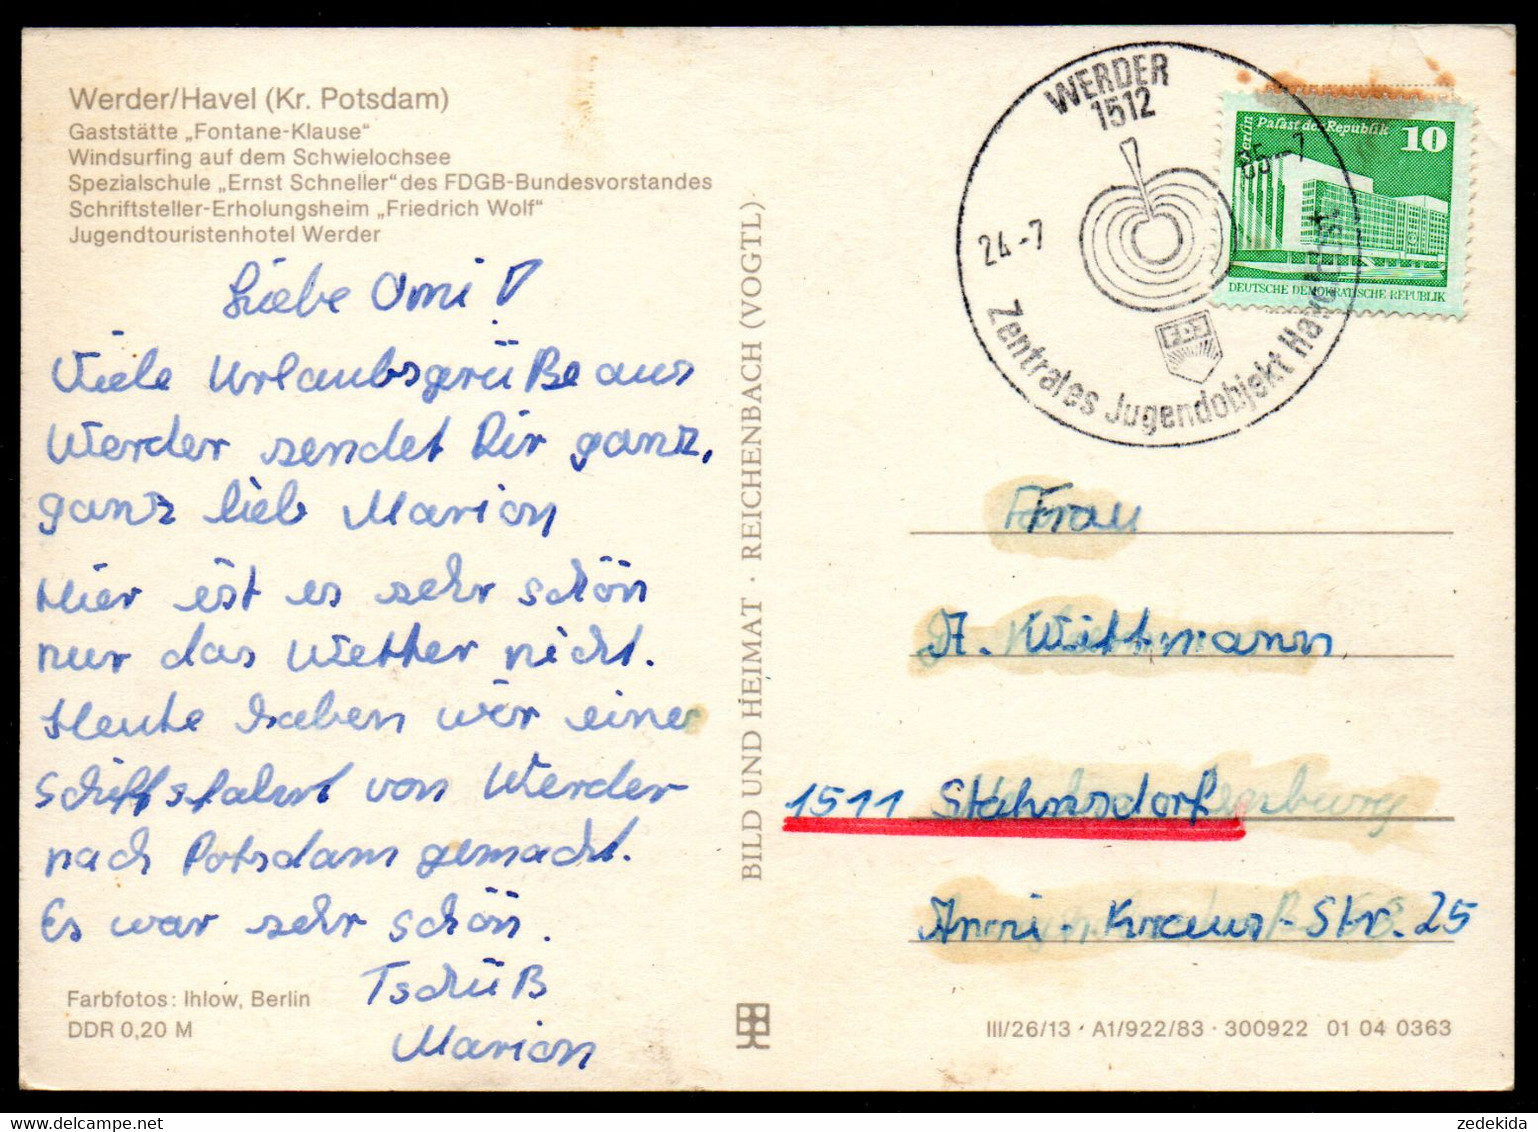 Werder/Havel (Kr. Potsdam)
Gaststätte „Fontane-Klause“
Windsurfing auf dem Schwielochsee
Spezialschule „Ernst Schneller“ des FDGB-Bundesvorstandes
Schriftsteller-Erholungsheim „Friedrich Wolf“
Jugendtouristenhotel Werder
Liebe Omi!
Viele Urlaubsgrüße aus
Werder sendet Dir ganz,
ganz lieb Marion
Hier ist es sehr schön
nur das Wetter nicht.
Heute haben wir eine
Schiffsfahrt von Werder
nach Potsdam gemacht.
Es war sehr schön.
Tschüß
Marion
Farbfotos: Ihlow, Berlin
DDR 0,20 M
BILD UND HEIMAT · REICHENBACH (VOGTL)
WERDER
1512
24.-7
85--7
FDJ
Zentrales Jugendobjekt Havelobst
Berlin Palast der Republik 10
DEUTSCHE DEMOKRATISCHE REPUBLIK
Frau
A. Wittmann
1511 Stahnsdorf
Anni-Krauus-Str. 25
III/26/13 · A1/922/83 · 300922 01 04 0363
zedekida